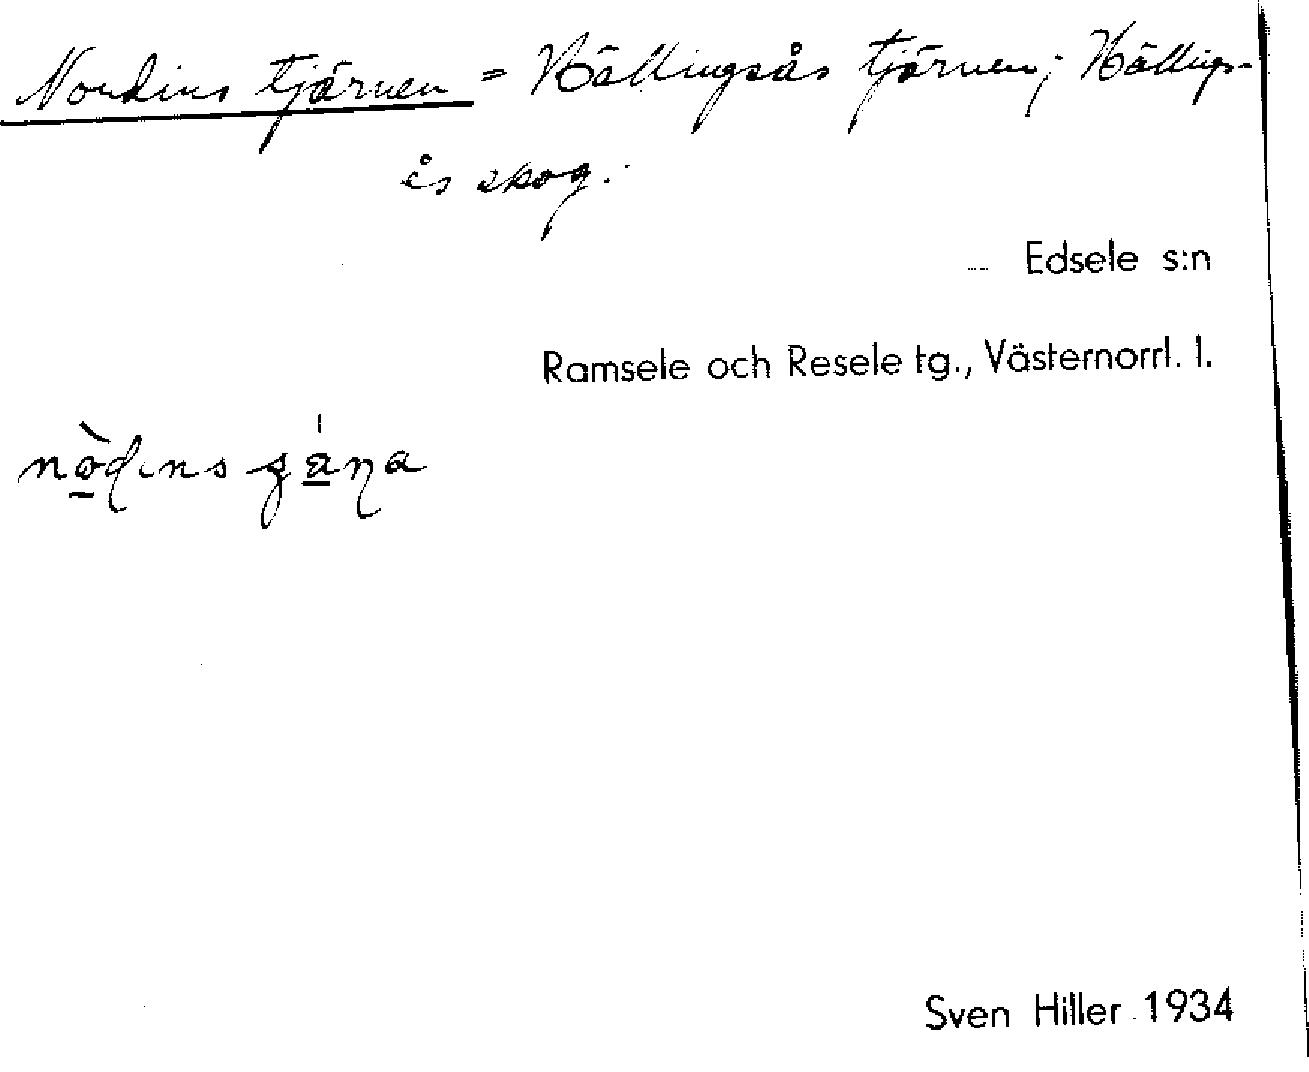 Nordins tjärnen = Hällingsås tjärnen; Hällings-
ås skog.
Edsele s:n
Ramsele och Resele tg., Västernorrl. l.
Sven Hiller 1934